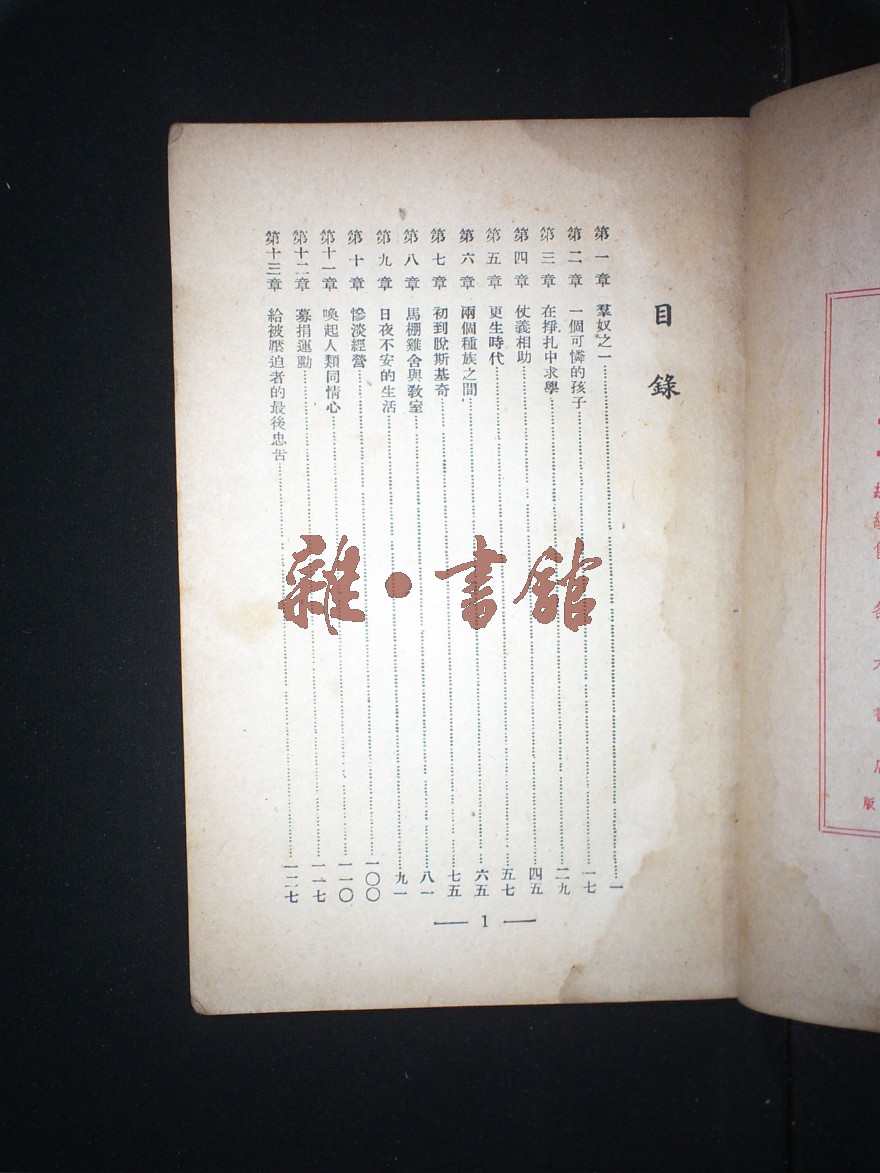 目錄
第一章 羣奴之一……一
第二章 一個可憐的孩子……一七
第三章 在掙扎中求學……二九
第四章 仗義相助……四五
第五章 更生時代……五七
第六章 兩個種族之間……六五
第七章 初到脫斯基奇……七五
第八章 馬棚雞舍與教室……八一
第九章 日夜不安的生活……九一
第十章 慘淡經營……一〇〇
第十一章 喚起人類同情心……一一〇
第十二章 募捐運動……一一七
第十三章 給被壓迫者的最後忠告……一二七
— 1 —
雜·書館
版